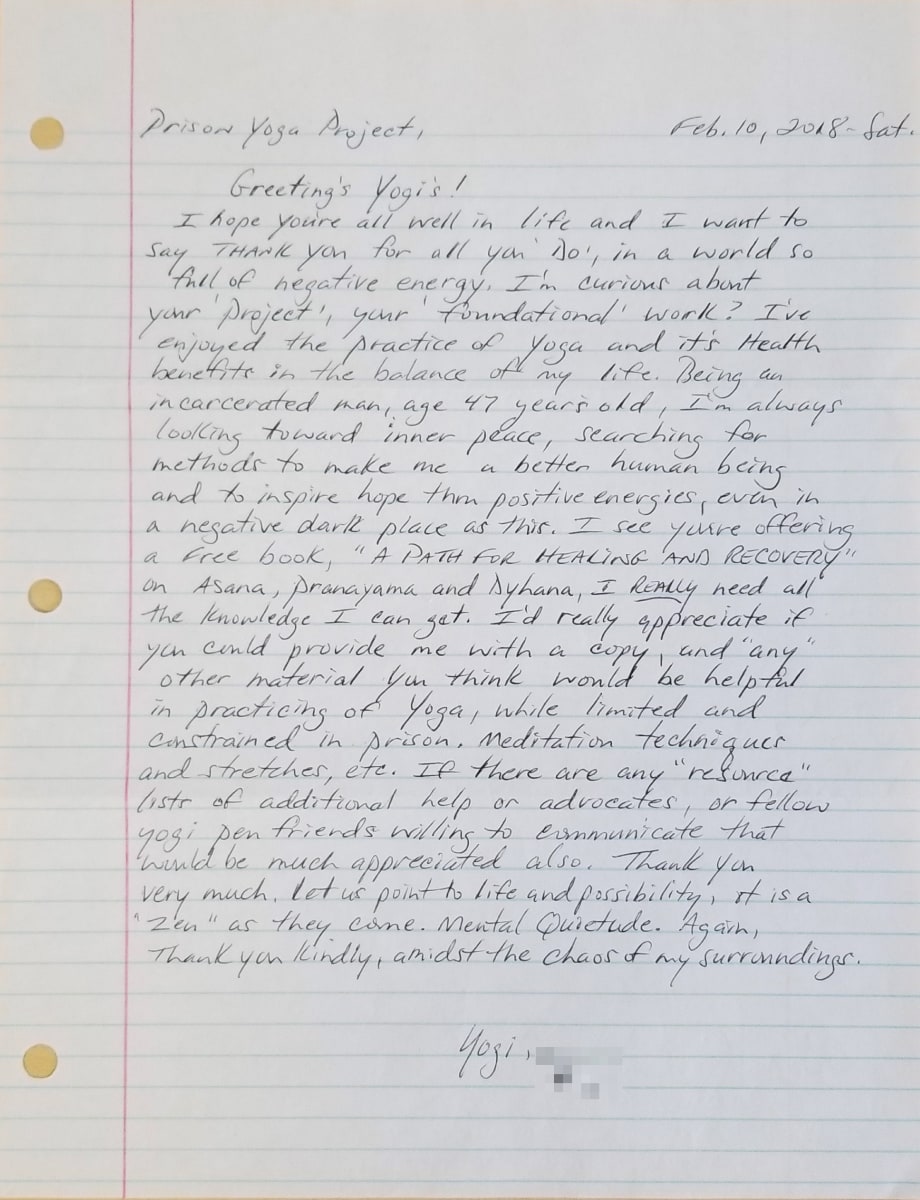 Prison Yoga Project,
Feb. 10, 2018 - Sat.
Greeting's Yogi's!
I hope you're all well in life and I want to
say THANK you for all you 'Do', in a world so
full of negative energy. I'm curious about
your 'project', your 'foundational' work? I've
enjoyed the practice of Yoga and it's Health
benefits in the balance of my life. Being an
incarcerated man, age 47 years old, I'm always
looking toward inner peace, searching for
methods to make me a better human being
and to inspire hope thru positive energies, even in
a negative dark place as this. I see you're offering
a Free book, "A PATH FOR HEALING AND RECOVERY"
on Asana, Pranayama and Dyhana, I REALLY need all
the knowledge I can get. I'd really appreciate if
you could provide me with a copy, and "any"
other material you think would be helpful
in practicing of Yoga, while limited and
constrained in prison. Meditation techniques
and stretches, etc. If there are any "resource"
lists of additional help or advocates, or fellow
yogi pen friends willing to communicate that
would be much appreciated also. Thank you
very much. Let us point to life and possibility, it is a
"Zen" as they come. Mental Quietude. Again,
Thank you kindly, amidst the chaos of my surroundings.
Yogi,